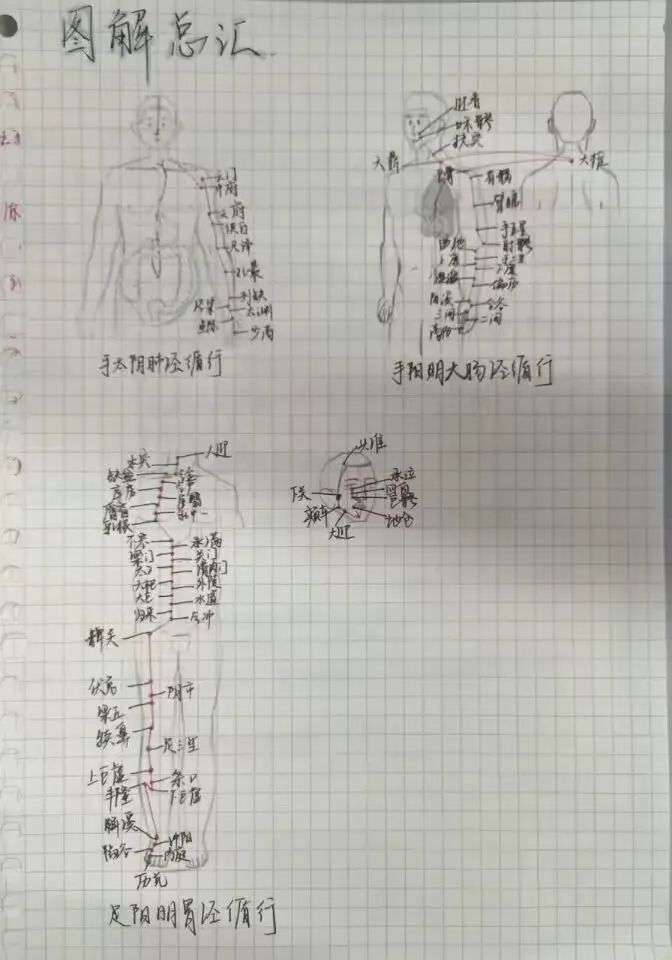 图解总汇
云门
中府
天府
侠白
尺泽
孔最
列缺
太渊
鱼际
少商
手太阴肺泾循行
口禾髎
扶突
大椎
肩髃
臂臑
手五里
肘髎
曲池
上廉
下廉
偏历
阳溪
合谷
三间
二间
商阳
手阳明大肠泾循行
人迎
水突
缺盆
库房
膺窗
乳根
不容
承满
梁门
关门
太乙
滑肉门
外陵
大巨
水道
归来
气冲
髀关
伏兔
阴市
梁丘
犊鼻
足三里
上巨虚
条口
丰隆
下巨虚
解溪
冲阳
陷谷
内庭
厉兑
足阳明胃泾循行
头维
承泣
下关
颊车
地仓
大迎